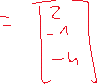 = [ 2
-1
-4 ]